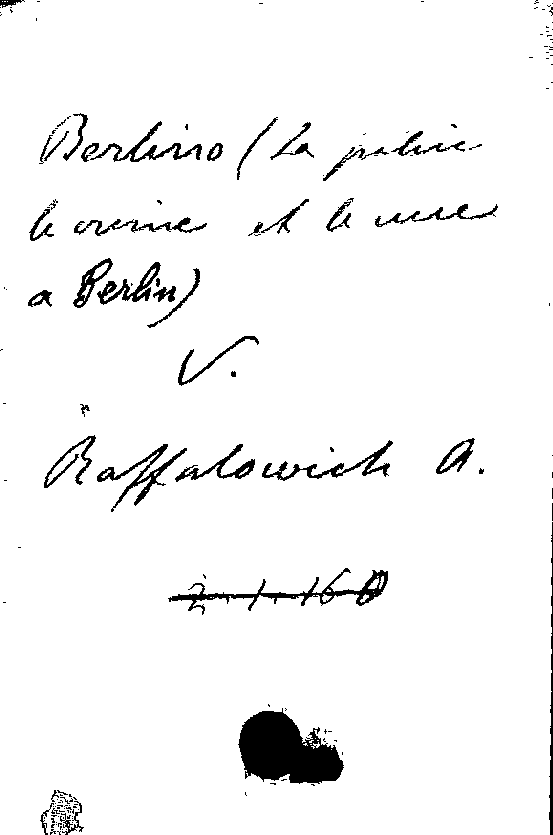 Berlino (La police
le crime et le vice
a Berlin)
V.
Raffalowich A.
2.1.16 D